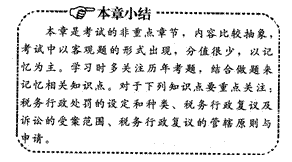 本章小结
本章是考试的非重点章节，内容比较抽象，
考试中以客观题的形式出现，分值很少，以记
忆为主。学习时多关注历年考题，结合做题来
记忆相关知识点。对于下列知识点要重点关注：
税务行政处罚的设定和种类、税务行政复议及
诉讼的受案范围、税务行政复议的管辖原则与
申请。